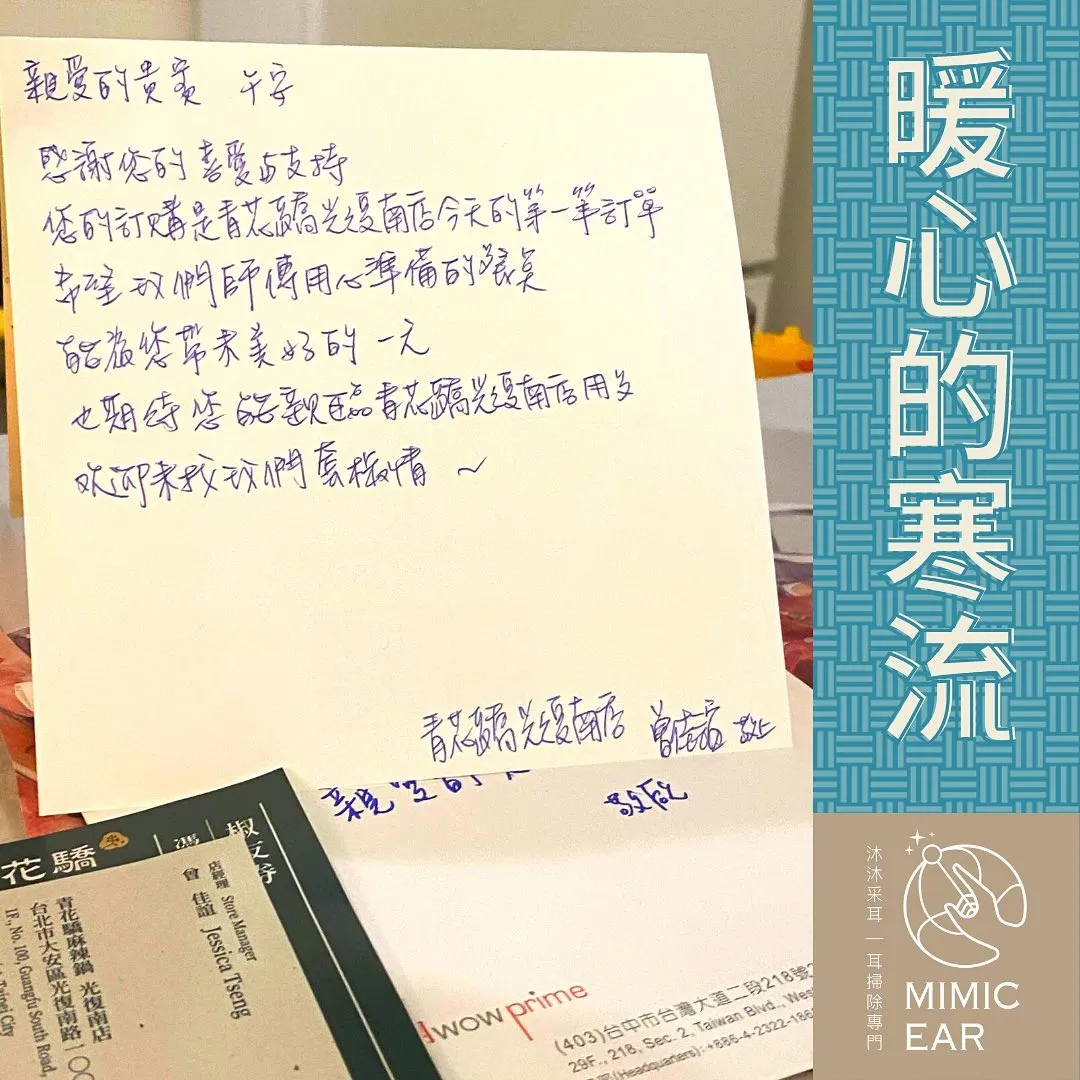 親愛的貴賓 午安
感謝您的喜愛与支持
您的訂購是青花驕光復南店今天的第一筆訂單
希望我們師傅用心準備的餐点
能為您帶來美好的一天
也期待您能親臨青花驕光復南店用歺
欢迎來找我們套椒情 ~
青花驕光復南店 曾佳誼 敬上
親愛的
敬啟
花驕
馮
店經理 Store Manager
曾 佳誼 Jessica Tseng
青花驕麻辣鍋 光復南店
台北市大安區光復南路一〇〇
1F., No. 100, Guangfu South Road,
Taipei City
wowprime
(403)台中市台灣大道二段218號2
29F., 218, Sec. 2, Taiwan Blvd., Wes
(Headquarters):+886-4-2322-186
暖心的寒流
沐沐采耳 — 耳掃除專門
MIMIC
EAR